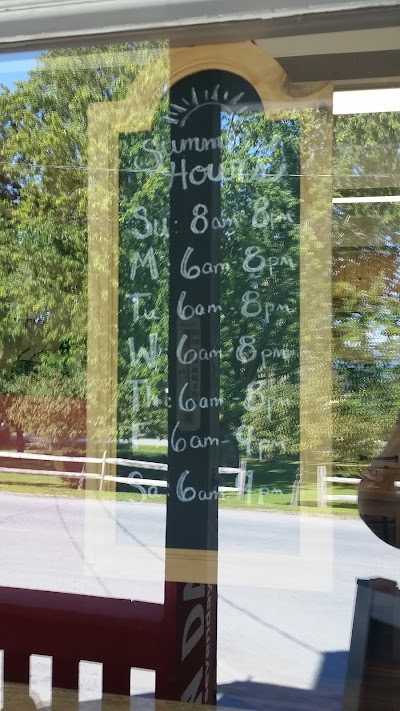 Summer
Hours
Su: 8am 8pm
M 6am 8pm
Tu 6am 8pm
W 6am 8pm
Th: 6am - 8pm
F 6am - 9pm
Sa 6am - 9pm